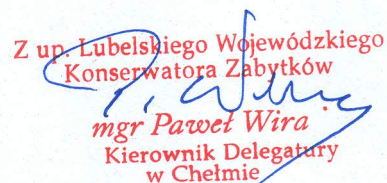 Z up. Lubelskiego Wojewódzkiego
Konserwatora Zabytków
mgr Paweł Wira
Kierownik Delegatury
w Chełmie